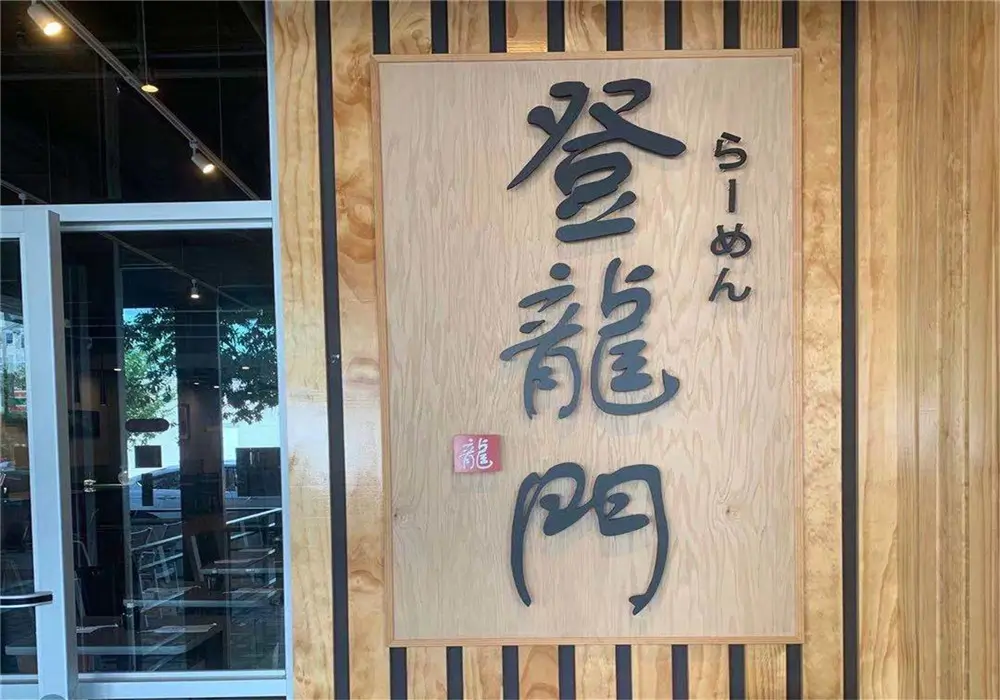 らーめん
登龍門
龍